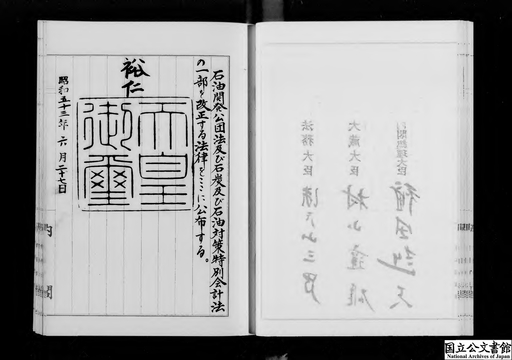 石油開発公団法及び石炭及び石油対策特別会計法
の一部を改正する法律をここに公布する。
裕仁
天皇
御璽
昭和五十三年六月二十七日
内閣総理大臣 福田赳夫
大蔵大臣 村山達雄
法務大臣 瀬戸山三男
国立公文書館
National Archives of Japan